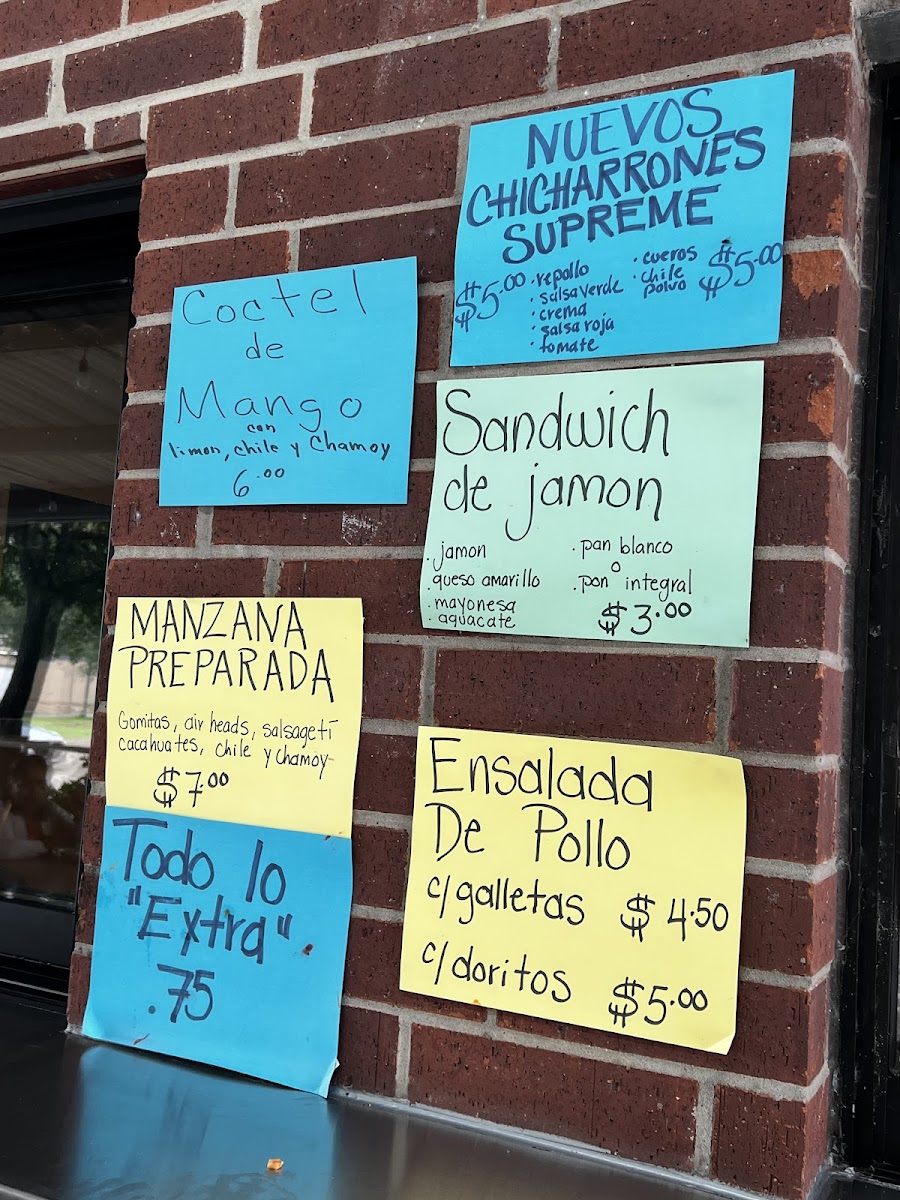 NUEVOS
CHICHARRONES
SUPREME
$5.00
· repollo
· salsa verde
· crema
· salsa roja
· tomate
· cueros
· chile
polvo
$5.00
Coctel
de
Mango
con
limon, chile y Chamoy
6.00
Sandwich
de jamon
. jamon
. queso amarillo
. mayonesa
. aguacate
. pan blanco
o
. pan integral
$3.00
MANZANA
PREPARADA
Gomitas, air heads, salsageti
cacahuates, chile y chamoy
$7.00
Todo lo
"Extra"
.75
Ensalada
De Pollo
c/galletas $4.50
c/doritos $5.00